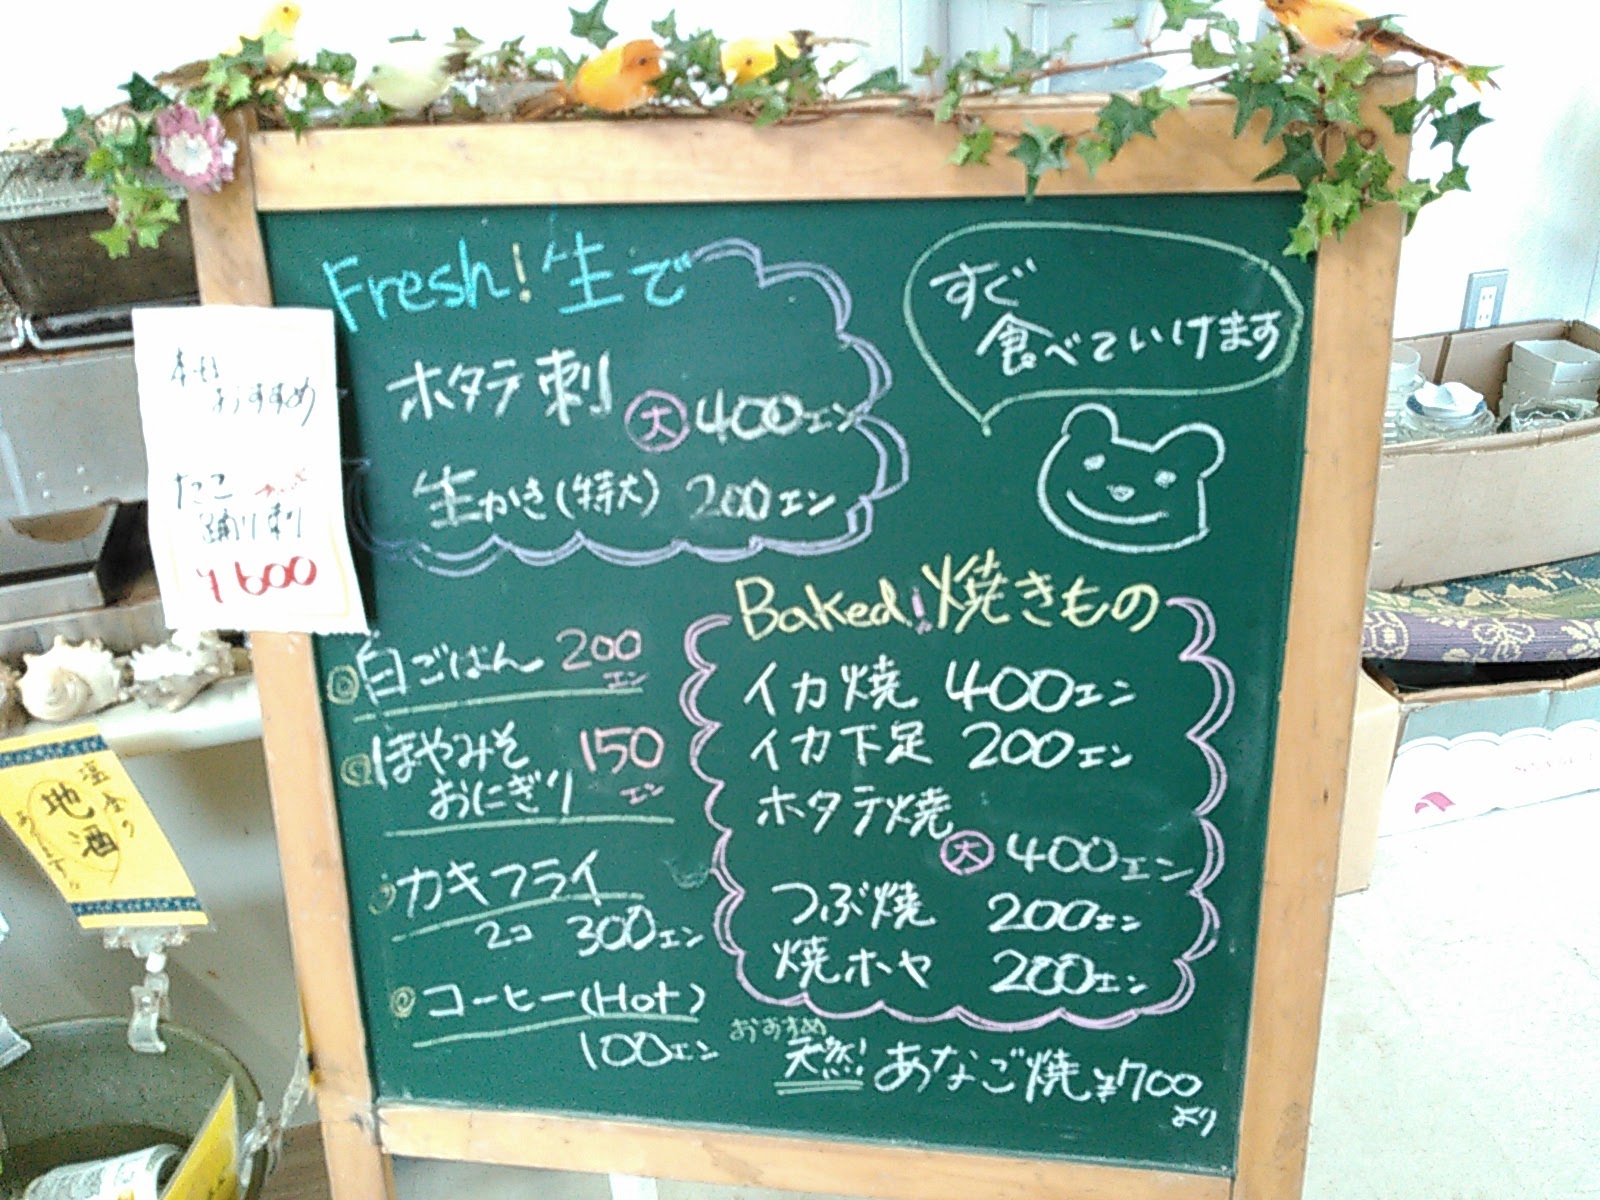 Fresh! 生で
ホタテ刺
大 400エン
生かき(特大) 200エン
すぐ
食べていけます
おすすめ
たこ
踊り刺
¥600
白ごはん 200
エン
ほやみそ 150
おにぎり エン
カキフライ
2コ 300エン
コーヒー(Hot)
100エン
Baked! 焼きもの
イカ焼 400エン
イカ下足 200エン
ホタテ焼
大 400エン
つぶ焼 200エン
焼ホヤ 200エン
おすすめ
天然! あなご焼 ¥700
より
塩釜の
地酒